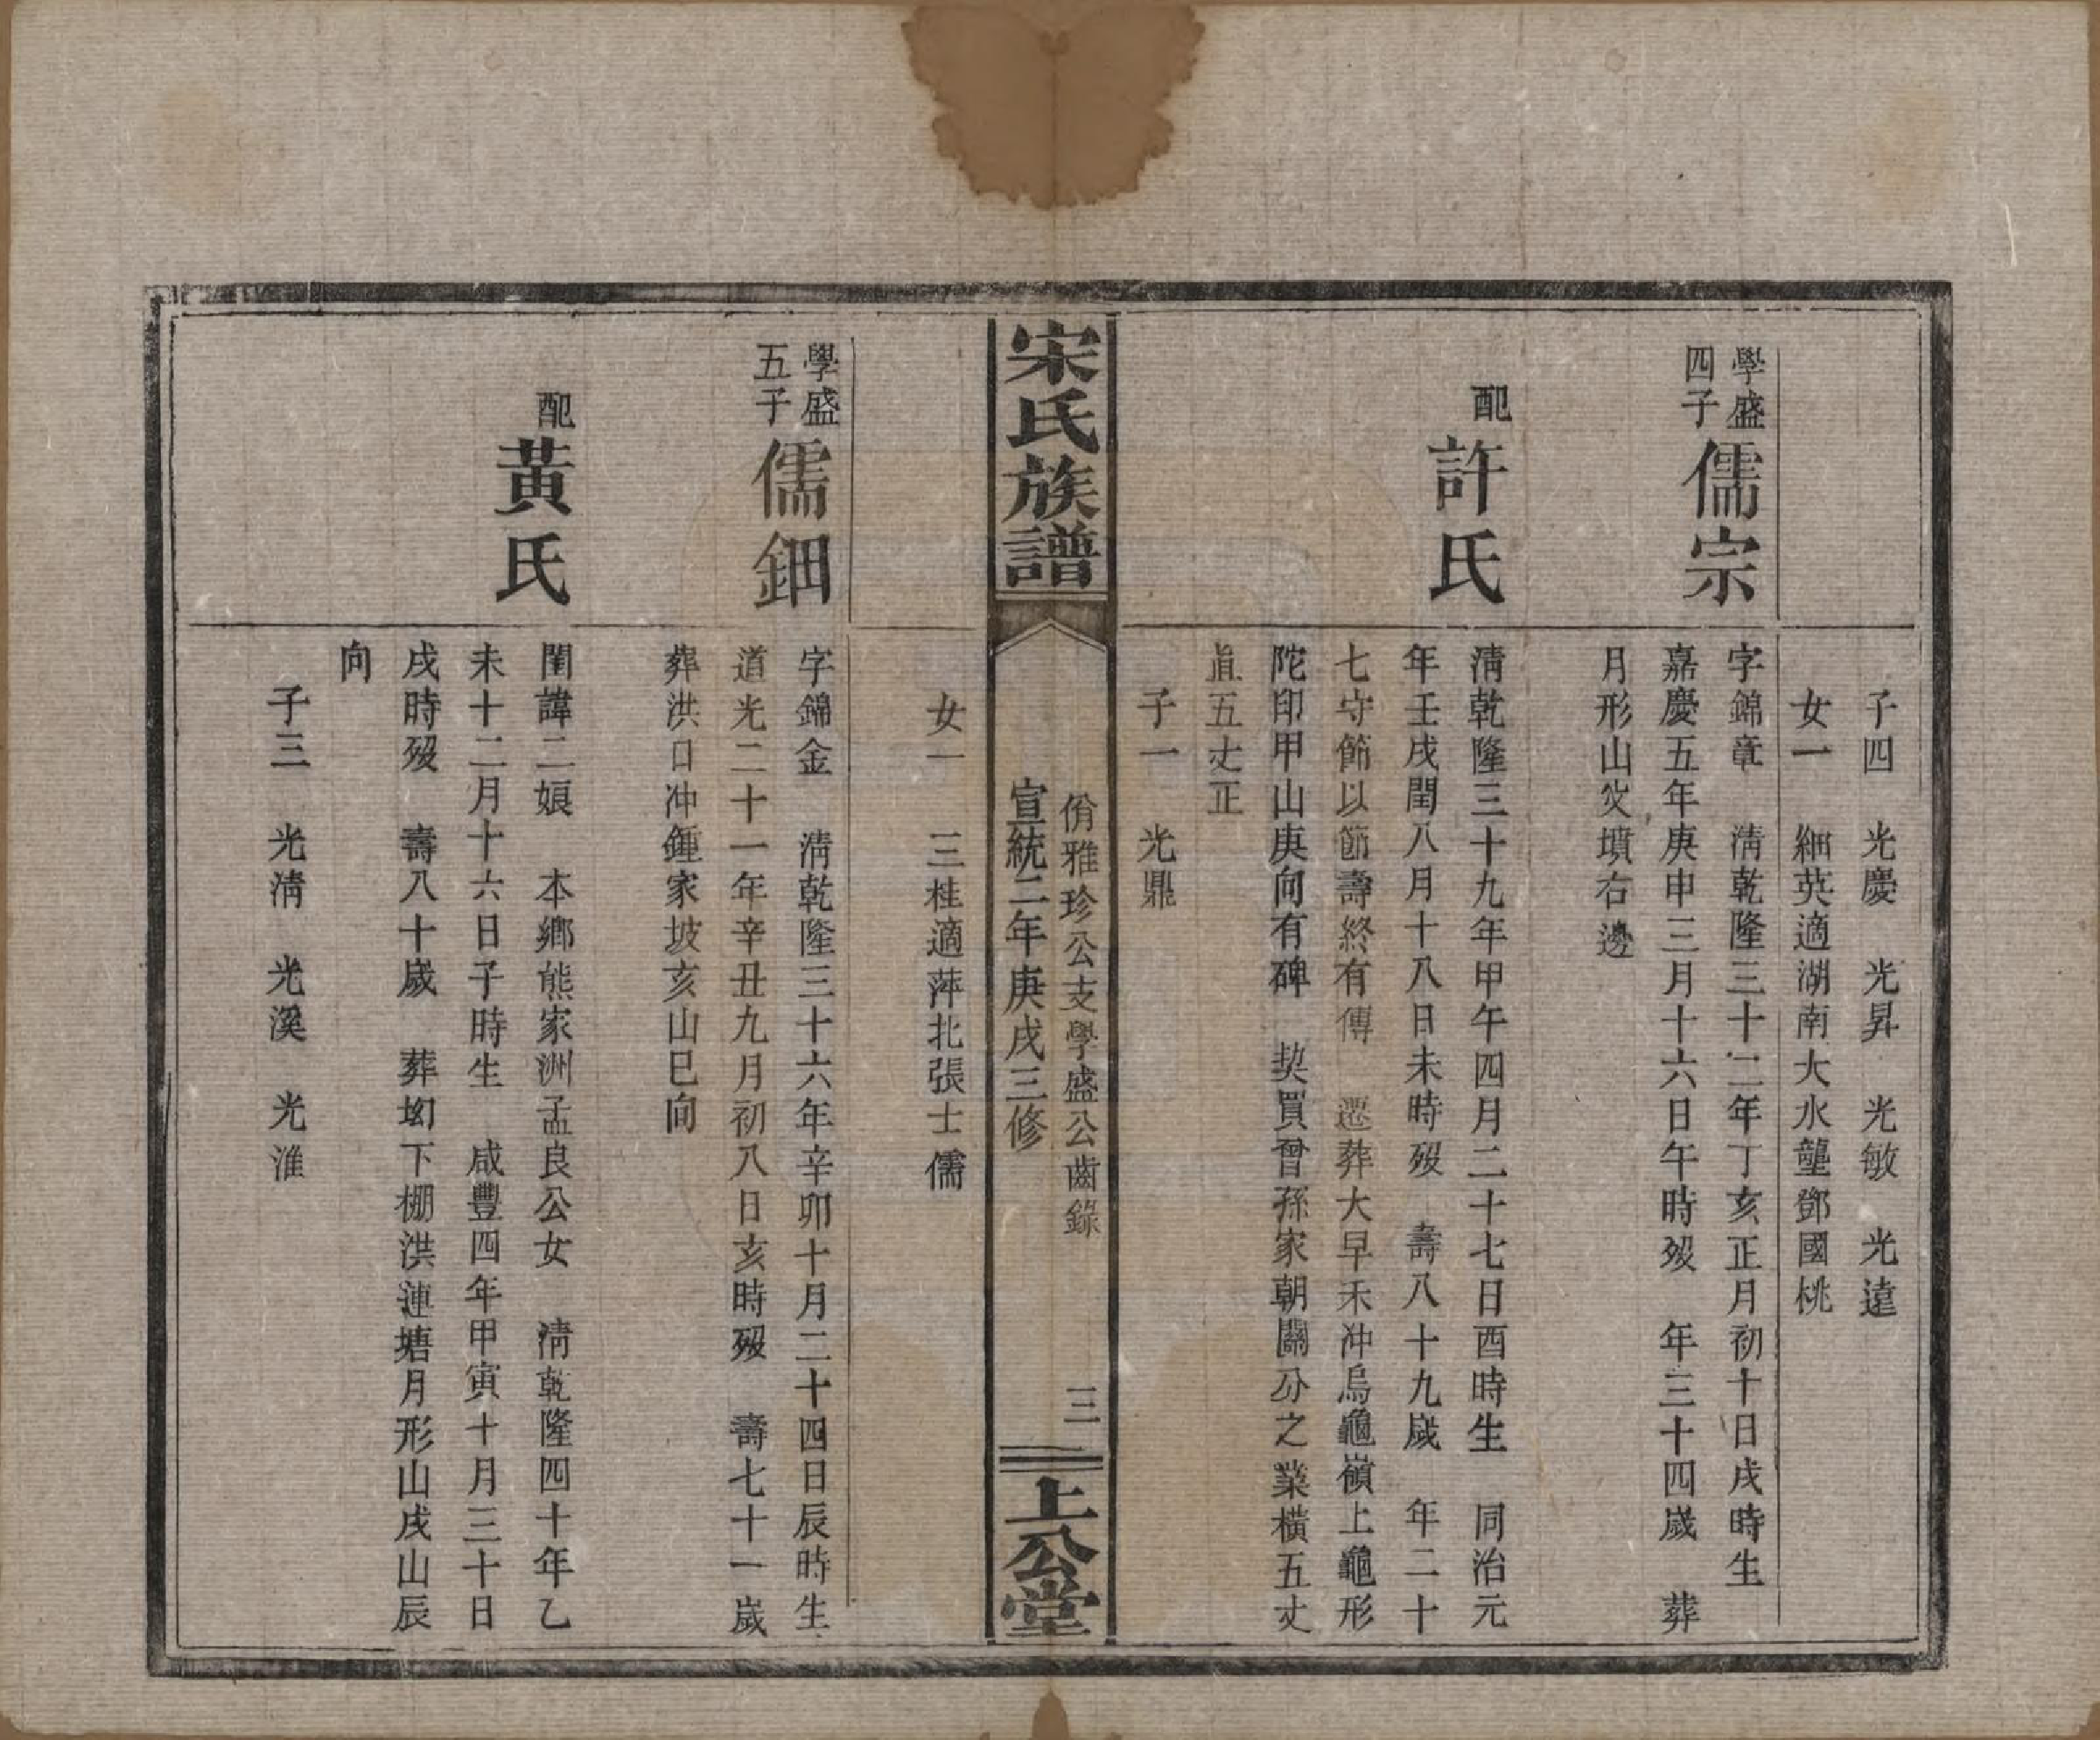 子四　光慶　光昇　光敏　光遠
女一　細英適湖南大水壟鄧國桃
學盛四子
儒宗
字錦章　清乾隆三十二年丁亥正月初十日戌時生
嘉慶五年庚申三月十六日午時歿　年三十四歲　葬
月形山父墳右邊
配許氏
清乾隆三十九年甲午四月二十七日酉時生　同治元
年壬戌閏八月十八日未時歿　壽八十九歲　年二十
七守節以節壽終有傳　遷葬大早禾冲烏龜嶺上龜形
陀印甲山庚向有碑　契買曾孫家朝關分之業橫五丈
直五丈正
子一　光鼎
宋氏族譜
佾雅珍公支學盛公齒錄
宣統二年庚戌三修
三
上公堂
女一　三桂適萍北張士儒
學盛五子
儒鈿
字錦金　清乾隆三十六年辛卯十月二十四日辰時生
道光二十一年辛丑九月初八日亥時歿　壽七十一歲
葬洪口冲鍾家坡亥山巳向
配黃氏
閨諱二娘　本鄉熊家洲孟良公女　清乾隆四十年乙
未十二月十六日子時生　咸豐四年甲寅十月三十日
戌時歿　壽八十歲　葬㘭下棚洪連塘月形山戌山辰
向
子三　光清　光溪　光淮